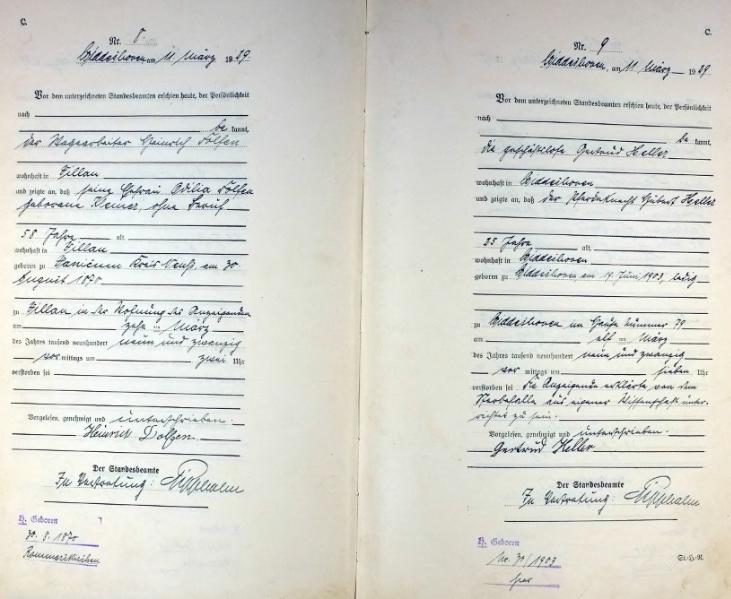 C.
Nr. 8.
Bedburdyck am 11. März 1929.
Vor dem unterzeichneten Standesbeamten erschien heute, der Persönlichkeit
nach
be kannt,
der Heinrich Dolfen
wohnhaft in
und zeigte an, daß seine Ehefrau Odilia Dolfen
geborene ohne Beruf
58 Jahre alt,
wohnhaft in
geboren zu Kreis Neuß, am 30.
August 1870.
zu in der Wohnung des Anzeigenden
am zehn ten März
des Jahres tausend neunhundert neun und zwanzig
vor mittags um zwei Uhr
verstorben sei
Vorgelesen, genehmigt und unterschrieben.
Heinrich Dolfen
Der Standesbeamte
In Vertretung:
H. Geboren
30. 8. 1870
Rommerskirchen
C.
Nr. 9
am 11. März 1929.
Vor dem unterzeichneten Standesbeamten erschien heute, der Persönlichkeit
nach
be kannt,
die geschäftslose Gertrud Heller
wohnhaft in
und zeigte an, daß der Pferdeknecht Hubert Heller
25 Jahre alt,
wohnhaft in
geboren zu am Juni 1903, ledig
zu im Hause Nummer 79
am elf ten März
des Jahres tausend neunhundert neun und zwanzig
vor mittags um sieben Uhr
verstorben sei. Die Anzeigende erklärte von dem
Sterbefalle aus eigener Wissenschaft unter-
richtet zu sein.
Vorgelesen, genehmigt und unterschrieben.
Gertrud Heller
Der Standesbeamte
In Vertretung:
H. Geboren
Nr. 30/1903
hier